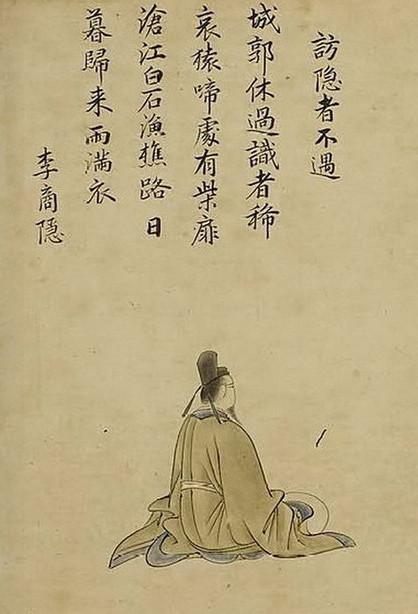 訪隐者不遇
城郭休過識者稀
哀猿啼處有柴扉
滄江白石漁樵路日
暮歸来雨満衣
李商隱